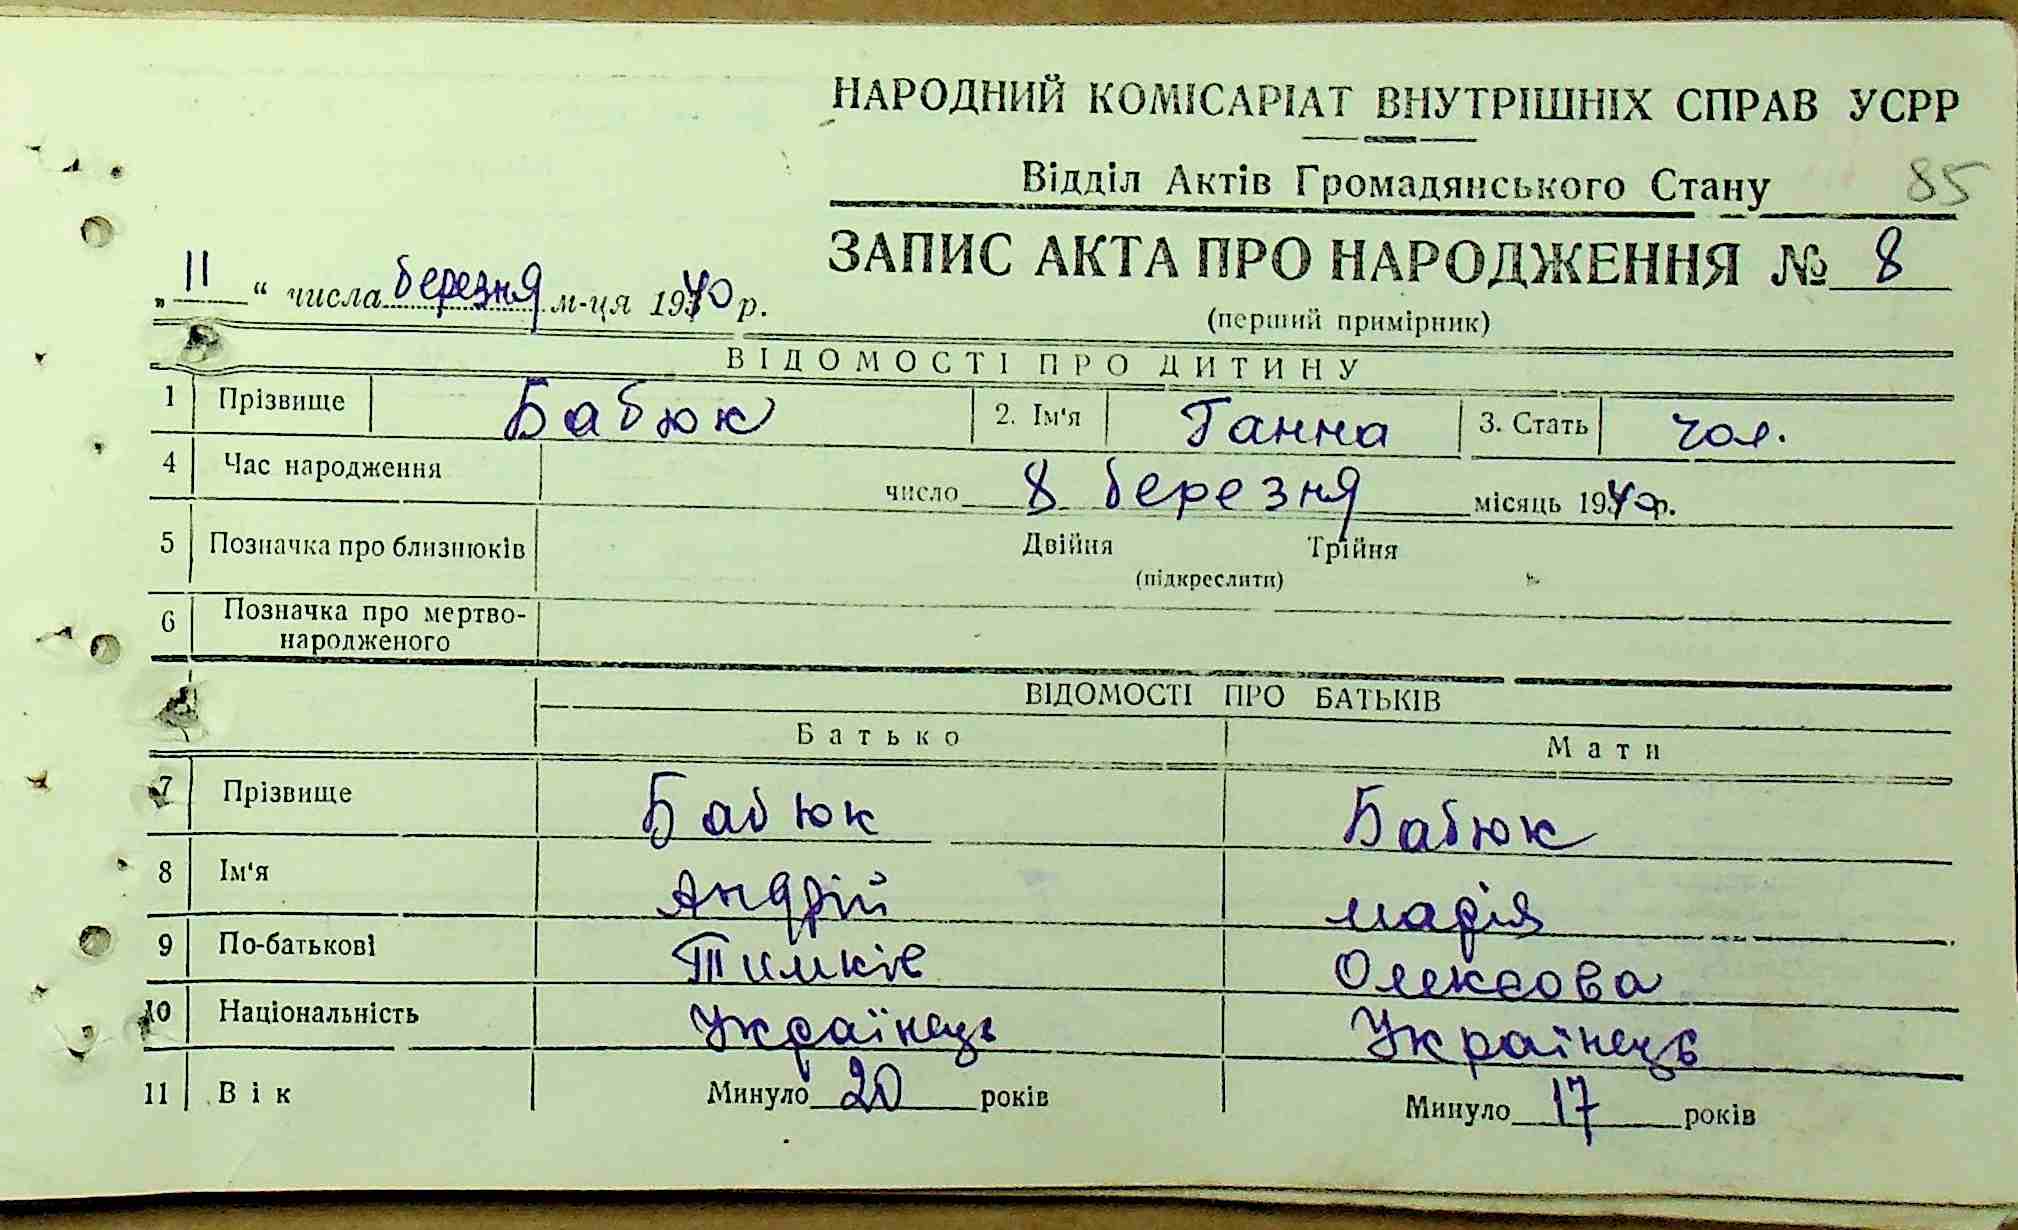 НАРОДНИЙ КОМІСАРІАТ ВНУТРІШНІХ СПРАВ УСРР
Відділ Актів Громадянського Стану 85
ЗАПИС АКТА ПРО НАРОДЖЕННЯ № 8
(перший примірник)
„11“ числа березня м-ця 1940 р.
ВІДОМОСТІ ПРО ДИТИНУ
1 Прізвище Бабюк 2. Ім'я Ганна 3. Стать чол.
4 Час народження число 8 березня місяць 1940р.
5 Позначка про близнюків Двійня Трійня
(підкреслити)
6 Позначка про мертво-
народженого
ВІДОМОСТІ ПРО БАТЬКІВ
Батько Мати
7 Прізвище Бабюк Бабюк
8 Ім'я Андрій марія
9 По-батькові Тимків Олексова
10 Національність Українець Українець
11 Вік Минуло 20 років Минуло 17 років